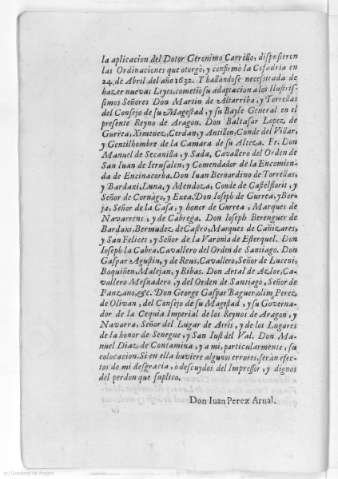 la aplicacion del Dotor Geronimo Carrillo, dispusieron
las Ordinaciones que otorgò, y confirmò la Cofadria en
24. de Abril del año 1632. Y hallandose necessitada de
hazer nuevas Leyes, cometiò su adaptacion a los Ilustrissimos
Señores Don Martin de Altarriba, y Torrellas
del Consejo de su Magestad, y su Bayle General en el
presente Reyno de Aragon. Don Baltasar Lopez, de
Gurrea, Ximenez, Cerdan, y Antillon, Conde del Villar,
y Gentilhombre de la Camara de su Alteza. Fr. Don
Manuel de Secanilla, y Sada, Cavallero del Orden de
San Iuan de Ierusalen, y Comendador de la Encomienda
de Encinacorba. Don Iuan Bernardino de Torrellas,
y Bardaxi, Luna, y Mendoza, Conde de Castelflorit, y
Señor de Cornago, y Exea. Don Ioseph de Gurrea, y Borja,
Señor de la Casa, y honor de Gurrea, Marques de
Navarrens, y de Cabrega. Don Ioseph Berenguer de
Bardaxi, Bermudez, de Castro, Marques de Cañizares,
y San Felices, y Señor de la Varonia de Esterquel. Don
Ioseph la Cabra, Cavallero del Orden de Santiago. Don
Gaspar Agustin, y de Reus, Cavallero, Señor de Luceni,
Boquiñen, Malejan, y Ribas. Don Artal de Azlor, Cavallero
Mesnadero, y del Orden de Santiago, Señor de
Panzano, &c. Don George Gaspar Baguer olim Perez
de Olivan, del Consejo de su Magestad, y su Governador
de la Cequia Imperial de los Reynos de Aragon, y
Navarra, Señor del Lugar de y de los Lugares
de la honor de Senegue, y San Iust del Val. Don Manuel
Diaz de Contamina, y a mi, particularmente, su
colocacion. Si en ella huviere algunos errores, seràn efectos
de mi desgracia, o descuydos del Impressor, y dignos
del perdon que suplico.
Don Iuan Perez Arnal.